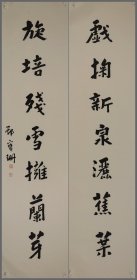 戲掬新泉灑蕉葉
旋培殘雪擁蘭芽